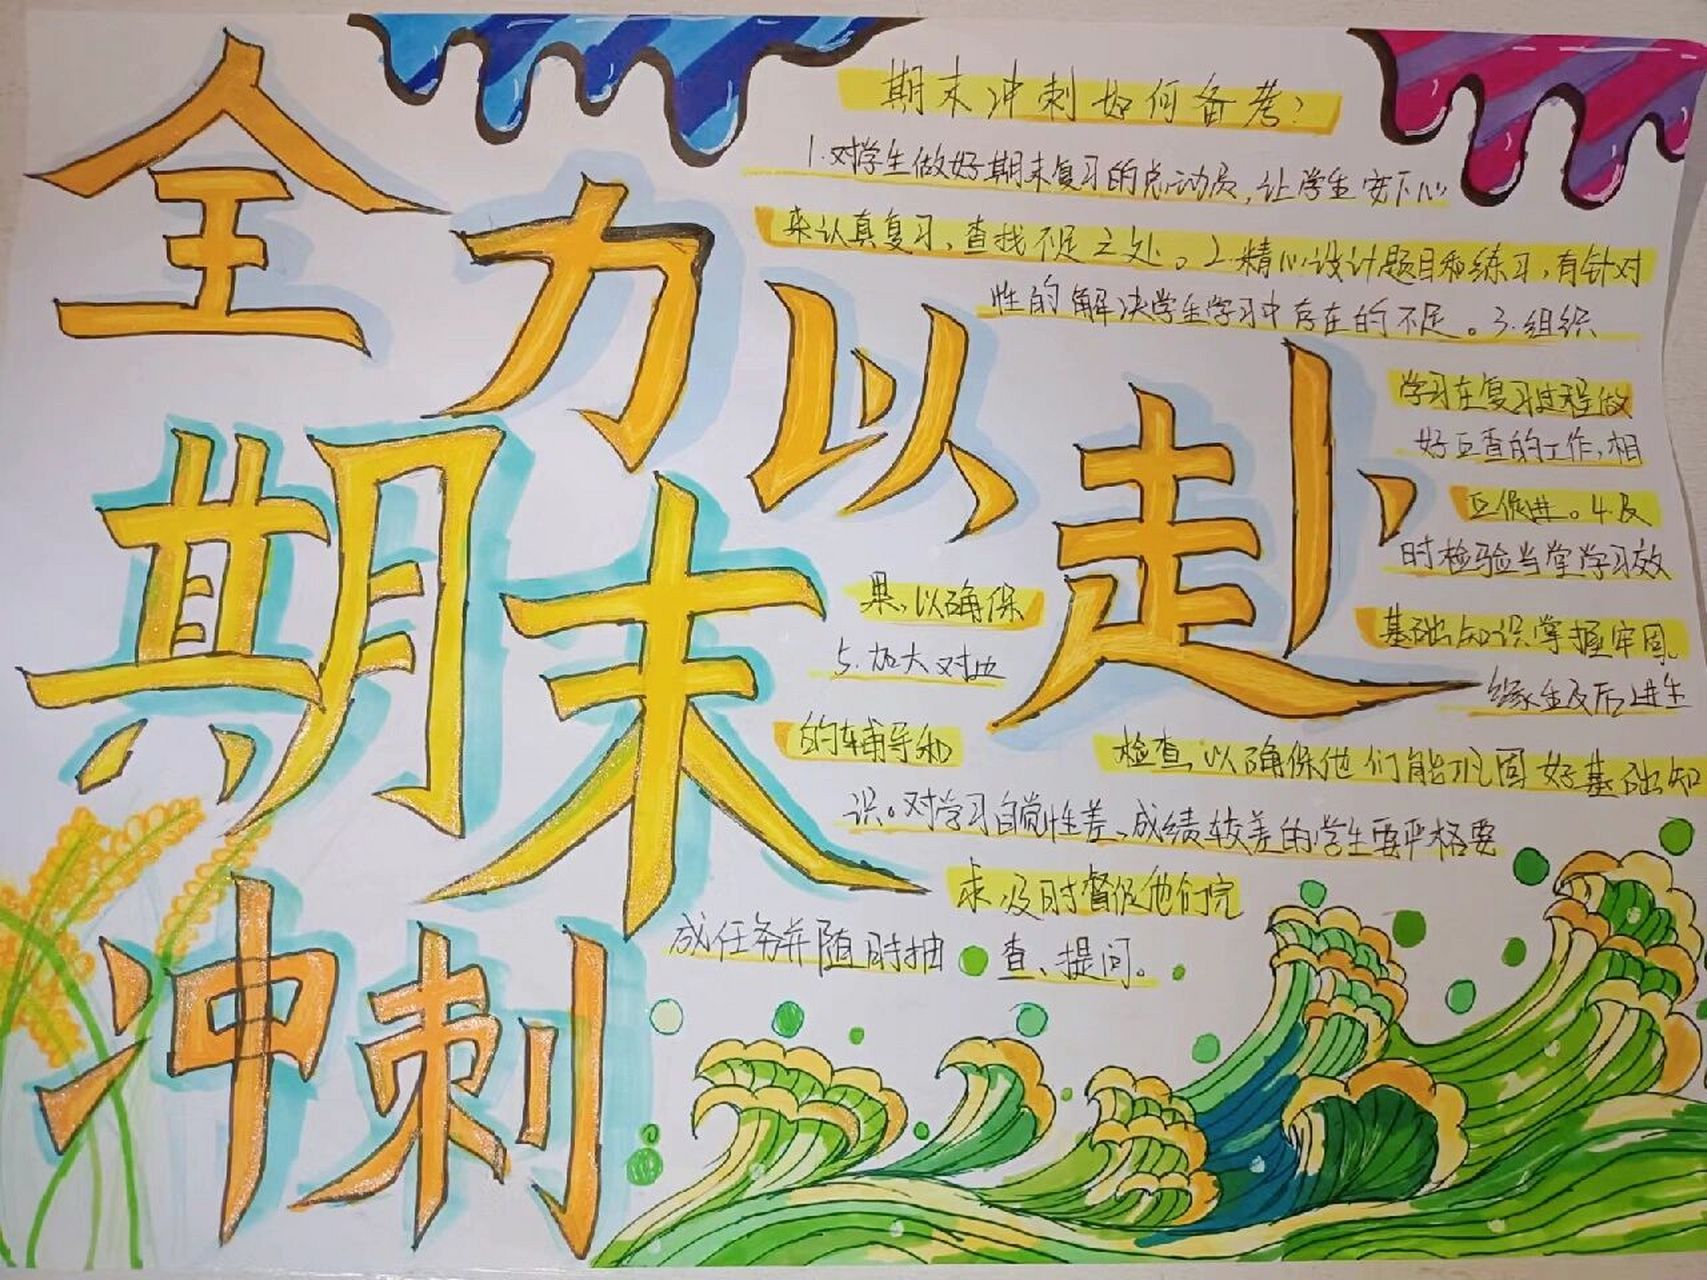 全力以赴
期末
冲刺
期末冲刺如何备考?
1.对学生做好期末复习的总动员,让学生安下心
来认真复习,查找不足之处。2.精心设计题目和练习,有针对
性的解决学生学习中存在的不足。3.组织
学习在复习过程做
好互查的工作,相
互促进。4.及
时检验当堂学习效
果,以确保 基础知识掌握牢固,
5.加大对边 缘生及后进生
的辅导和 检查,以确保他们能巩固好基础知
识。对学习自觉性差、成绩较差的学生要严格要
求,及时督促他们完
成任务并随时抽查、提问。